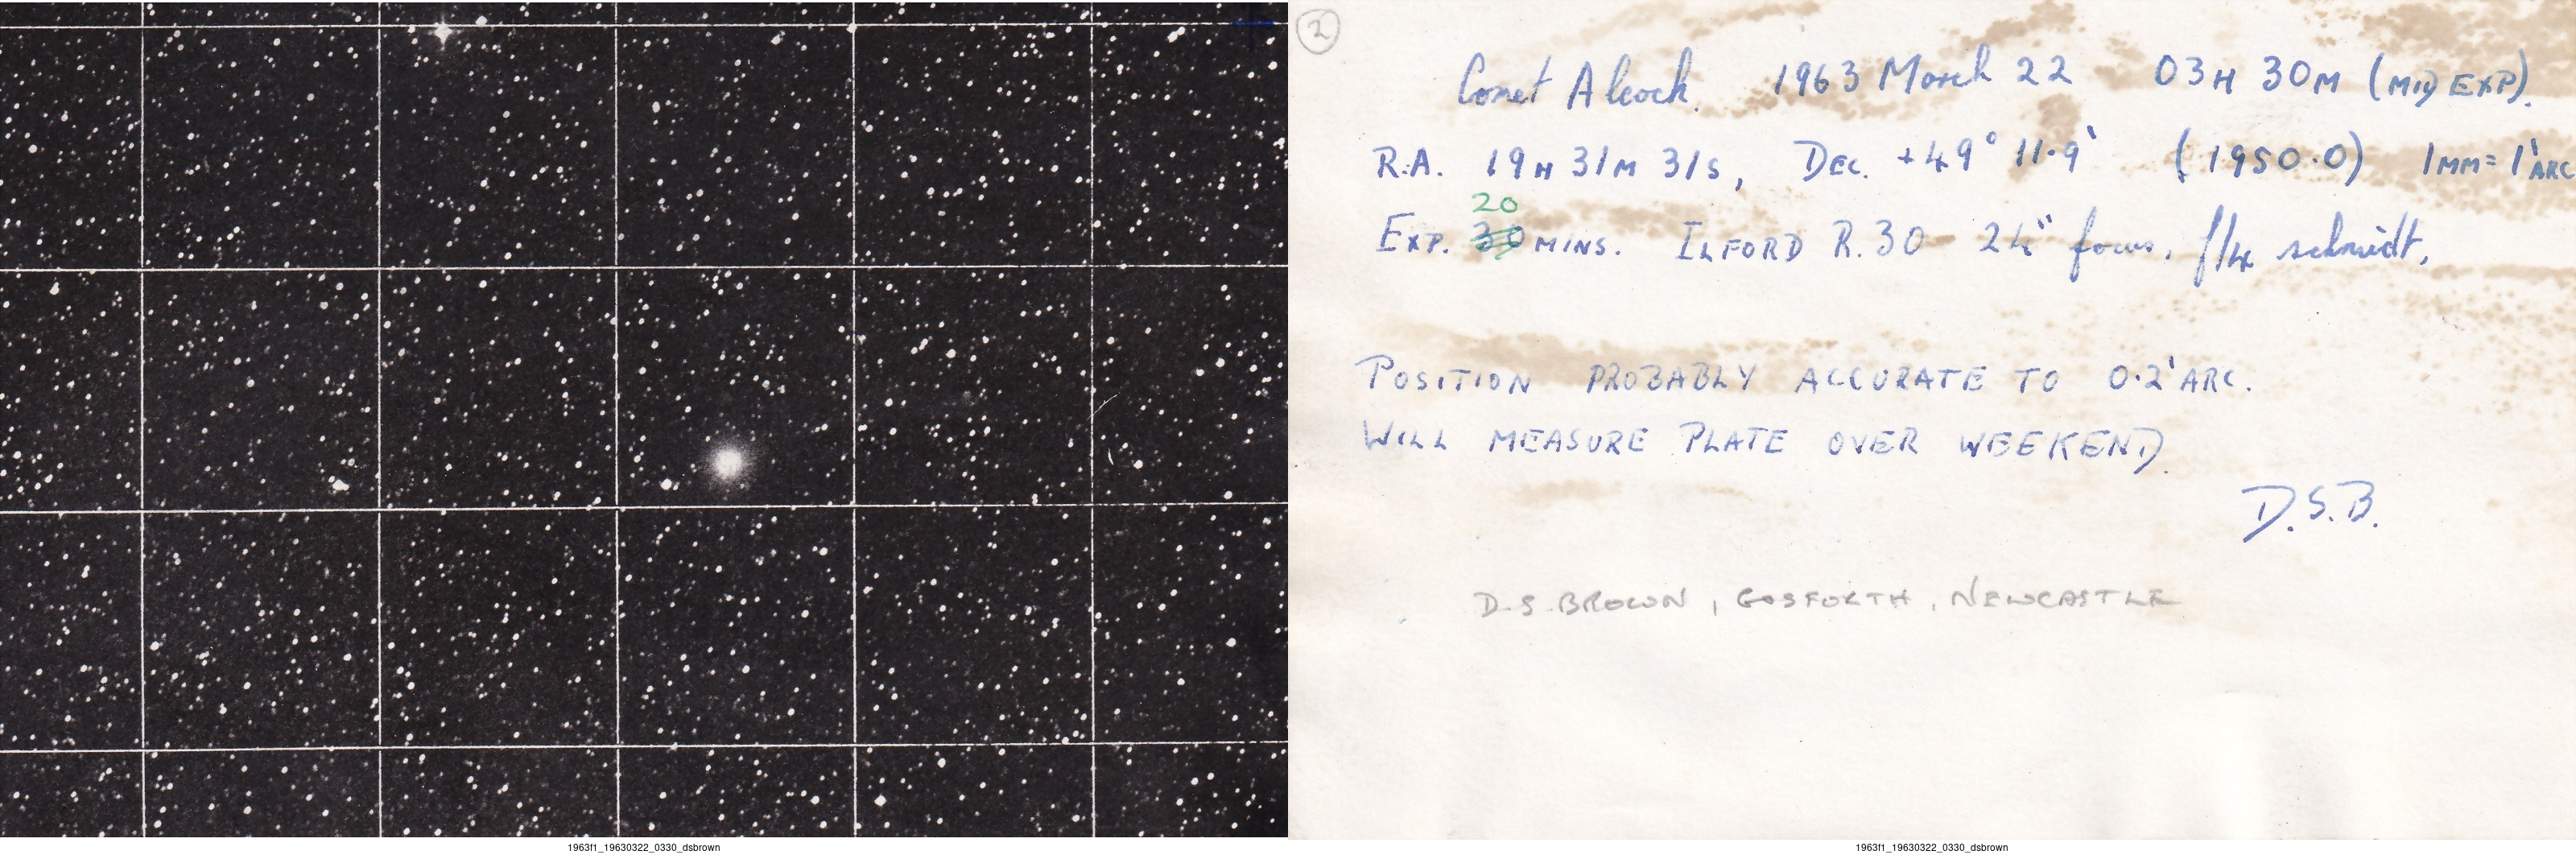 2
Comet Alcock. 1963 March 22 03H 30M (MID EXP).
R.A. 19H 31M 31S, DEC. +49° 11.9' (1950.0) 1MM=1'ARC
20
EXP. 30 MINS. ILFORD R.30 24" focus, f/4 schmidt.
POSITION PROBABLY ACCURATE TO 0.2'ARC.
WILL MEASURE PLATE OVER WEEKEND.
D.S.B.
D.S.BROWN, GOSFORTH, NEWCASTLE
1963f1_19630322_0330_dsbrown
1963f1_19630322_0330_dsbrown